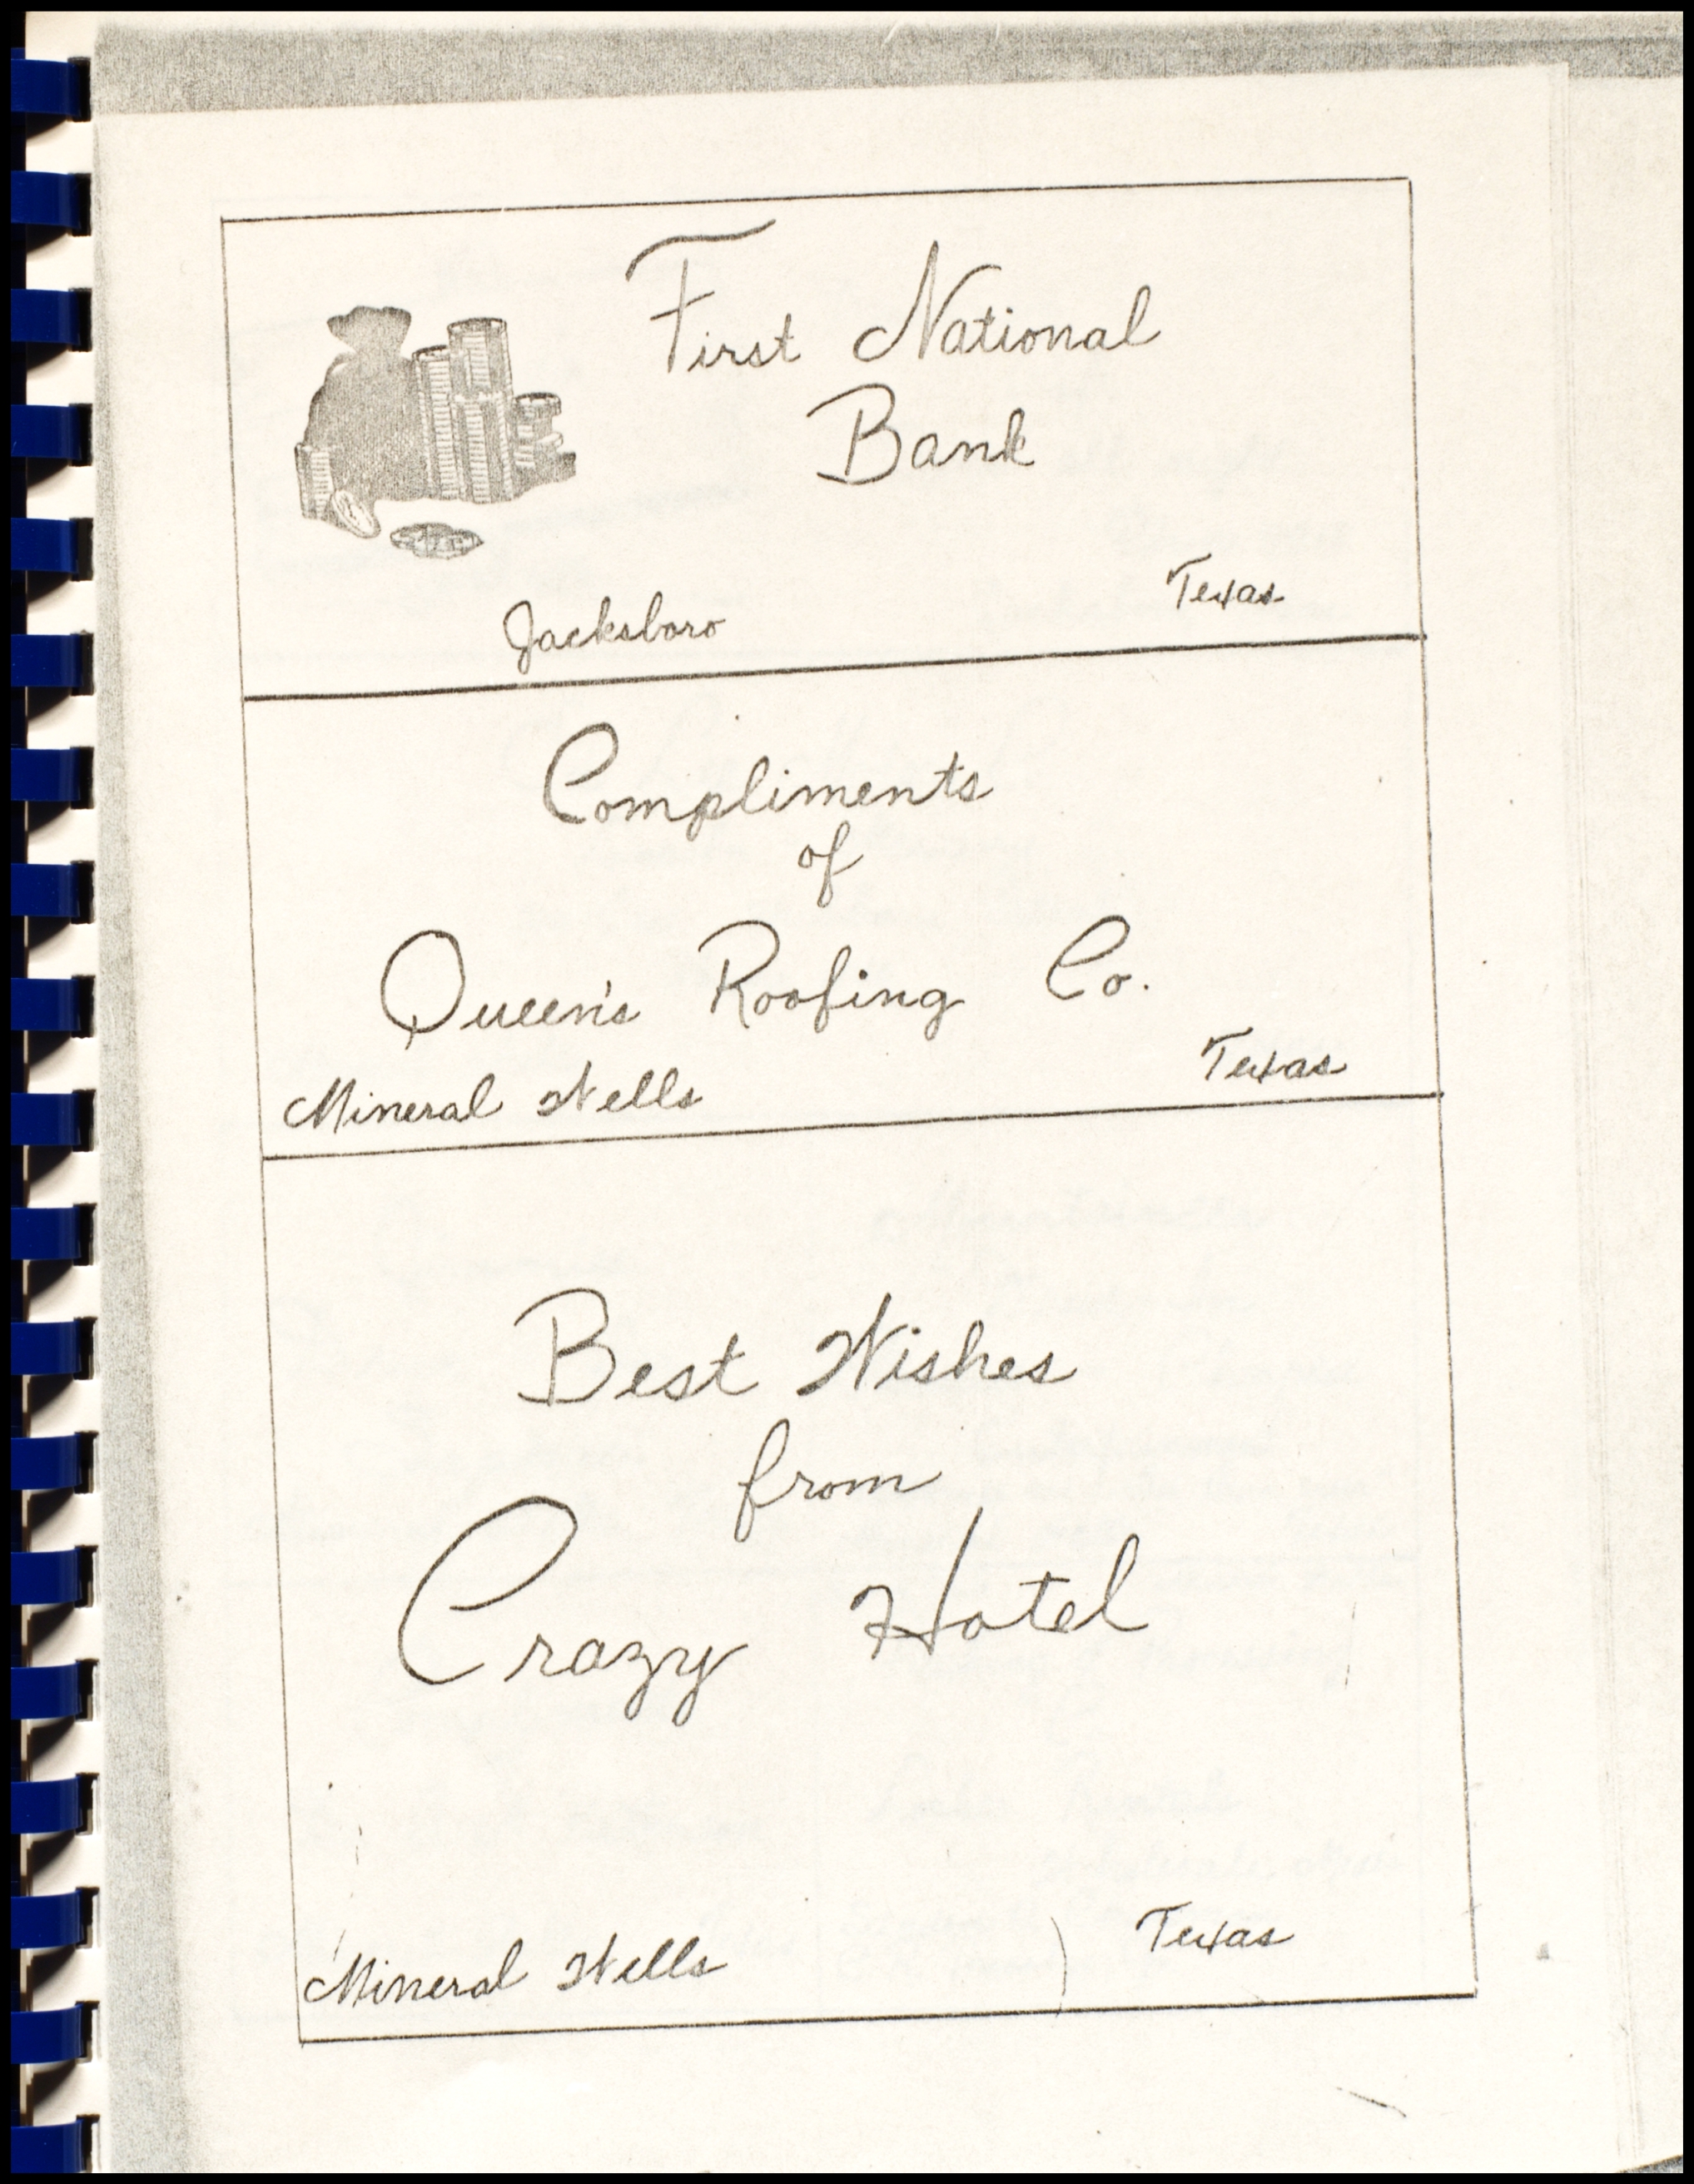 First National
Bank
Jacksboro Texas
Compliments
of
Queen's Roofing Co.
Mineral Wells Texas
Best Wishes
from
Crazy Hotel
Mineral Wells Texas